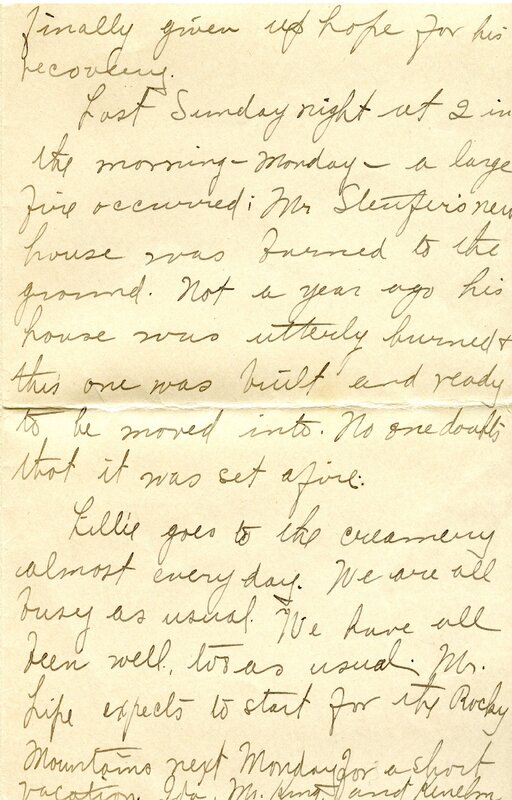 finally given up hope for his
recovery.
Last Sunday night at 2 in
the morning - Monday - a large
fire occurred; Mr new
house was burned to the
ground. Not a year ago his
house was utterly burned &
this one was built and ready
to be moved into. No one doubts
that it was set afire.
Lillie goes to the creamery
almost every day. We are all
busy as usual. We have all
been well, too as usual. Mr.
Lipe expects to start for the Rocky
Mountains next Monday for a short
vacation. Ida, Mr. and